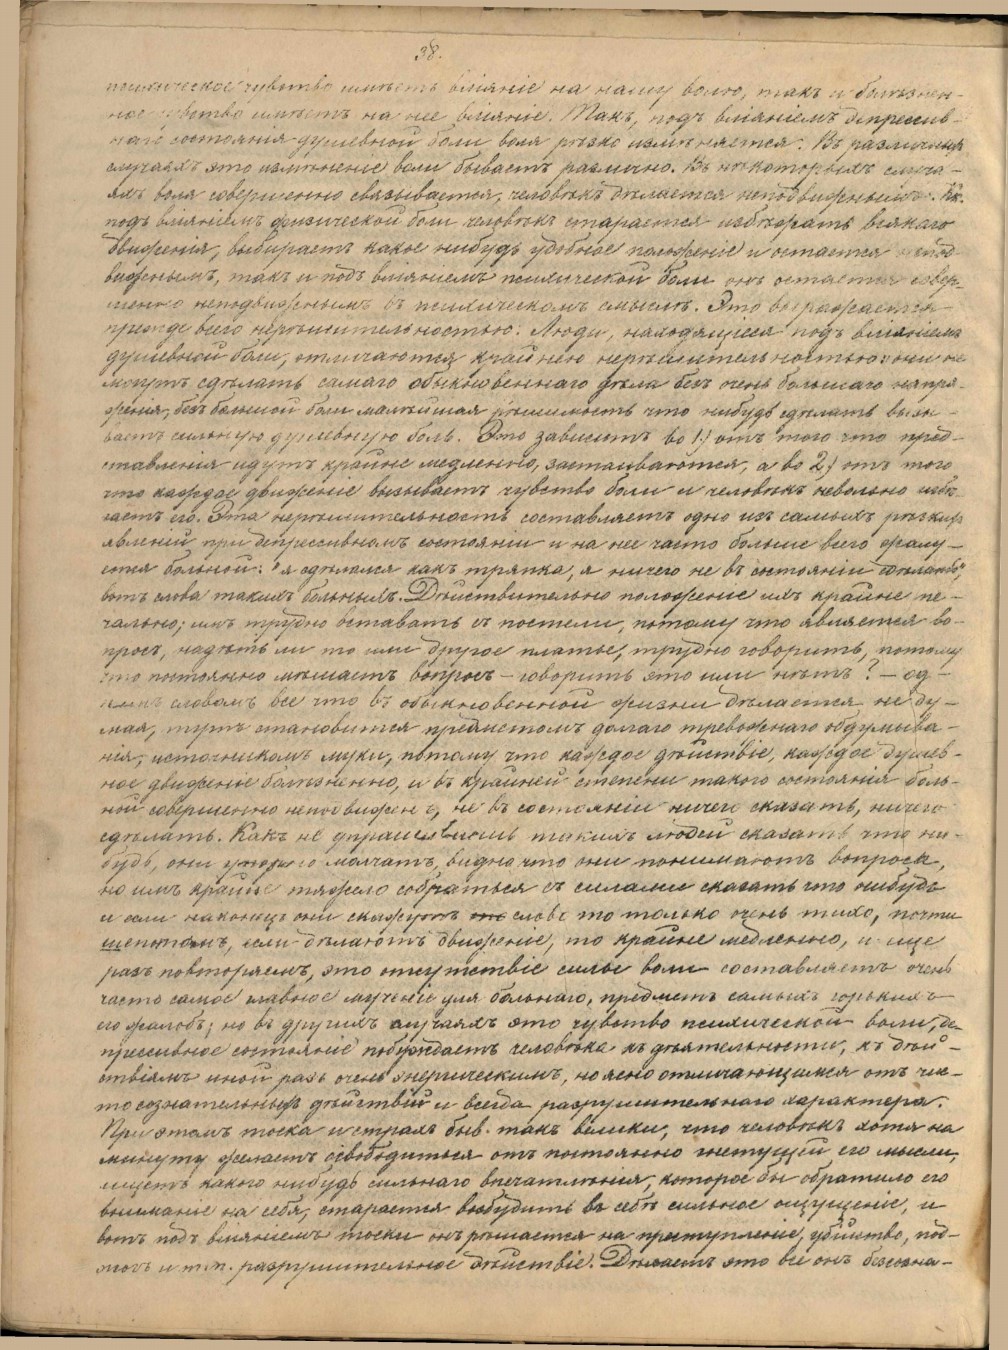 38.
психическое чувство имѣетъ вліяніе на нашу волю, такъ и болѣзнен-
ное чувство имѣетъ на нее вліяніе. Такъ, подъ вліяніемъ депрессив-
наго состоянія душевной боли воля рѣзко измѣняется. Въ различныхъ
случаяхъ это измѣненіе воли бываетъ различно. Въ нѣкоторыхъ случа-
яхъ воля совершенно связывается, человѣкъ дѣлается неподвижнымъ.
подъ вліяніемъ физической боли человѣкъ старается избѣжать всякаго
движенія, выбираетъ какое нибудь удобное положеніе и остается непод-
вижнымъ, такъ и подъ вліяніемъ психической боли онъ остается совер-
шенно неподвижнымъ въ психическомъ смыслѣ. Это выражается
прежде всего нерѣшительностью. Люди, находящіеся подъ вліяніемъ
душевной боли, отличаются крайнею нерѣшительностью: они не
могутъ сдѣлать самаго обыкновеннаго дѣла безъ очень большаго напря-
женія, безъ большой боли малѣйшая рѣшимость что нибудь сдѣлать вызы-
ваетъ сильную душевную боль. Это зависитъ во 1.) отъ того что пред-
ставленія идутъ крайне медленно, застаиваются, а во 2.) отъ того
что каждое движеніе вызываетъ чувство боли и человѣкъ невольно избѣ-
гаетъ его. Эта нерѣшительность составляетъ одно изъ самыхъ рѣзкихъ
явленій при депрессивномъ состояніи и на нее часто больше всего жалу-
ется больной: "я сдѣлался какъ тряпка, я ничего не въ состояніи сдѣлать",
вотъ слова такихъ больныхъ. Дѣйствительно положеніе ихъ крайне пе-
чально; имъ трудно вставать съ постели, потому что является во-
просъ, надѣть ли то или другое платье, трудно говорить, потому
что постоянно мѣшаетъ вопросъ – говорить это или нѣтъ? – од-
нимъ словомъ все что въ обыкновенной жизни дѣлается не ду-
мая, тутъ становится предметомъ долгаго тревожнаго обдумыва-
нія, источникомъ муки, потому что каждое дѣйствіе, каждое душев-
ное движеніе болѣзненно, и въ крайней степени такого состоянія боль-
ной совершенно неподвиженъ, не въ состояніи ничего сказать, ничего
сдѣлать. Какъ не упрашиваешь такихъ людей сказать что ни-
будь, они упорно молчатъ, видно что они понимаютъ вопросы,
но имъ крайне тяжело собраться съ силами сказать что нибудь
и если наконецъ они скажутъ слово то только очень тихо, почти
шепотомъ, если дѣлаютъ движеніе, то крайне медленно, и еще
разъ повторяемъ, это отсутствіе силы воли составляетъ очень
часто самое главное мученіе для больнаго, предметъ самыхъ горькихъ
его жалобъ; но въ другихъ случаяхъ это чувство психической боли, де-
прессивное состояніе побуждаетъ человѣка къ дѣятельности, къ дѣй-
ствіямъ иной разъ очень энергическимъ, но ясно отличающимся отъ чис-
то сознательныхъ дѣйствій и всегда разрушительнаго характера.
При этомъ тоска и страхъ быв. такъ велики, что человѣкъ хотя на
минуту желаетъ освободиться отъ постоянно гнетущей его мысли,
ищетъ какого нибудь сильнаго впечатлѣнія, которое бы обратило его
вниманіе на себя, старается возбудить въ себѣ сильное ощущеніе, и
вотъ подъ вліяніемъ тоски онъ рѣшается на преступленіе, убійство, под-
жогъ и т.п. разрушительное дѣйствіе. Дѣлаетъ это все онъ безсозна-